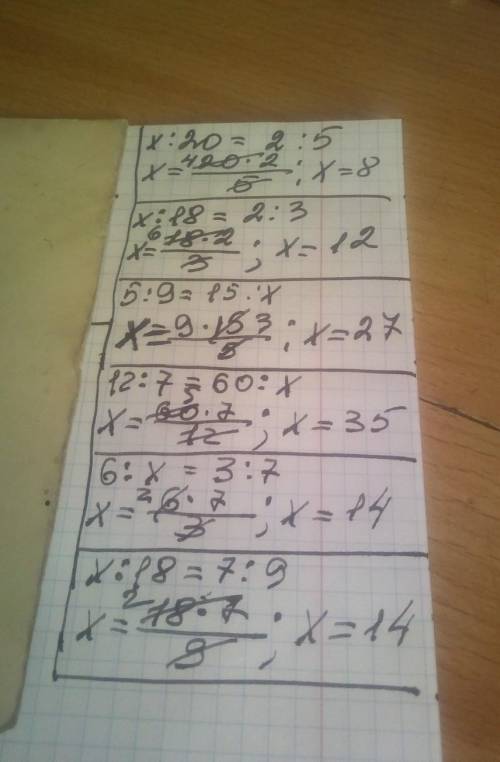 x:20 = 2:5
x = 4 20·2 / 5 ; x = 8
x:18 = 2:3
x = 6 18·2 / 3 ; x = 12
5:9 = 15:x
x = 9·15 3 / 5 ; x = 27
12:7 = 60:x
x = 5 60·7 / 12 ; x = 35
6:x = 3:7
x = 2 6·7 / 3 ; x = 14
x:18 = 7:9
x = 2 18·7 / 9 ; x = 14